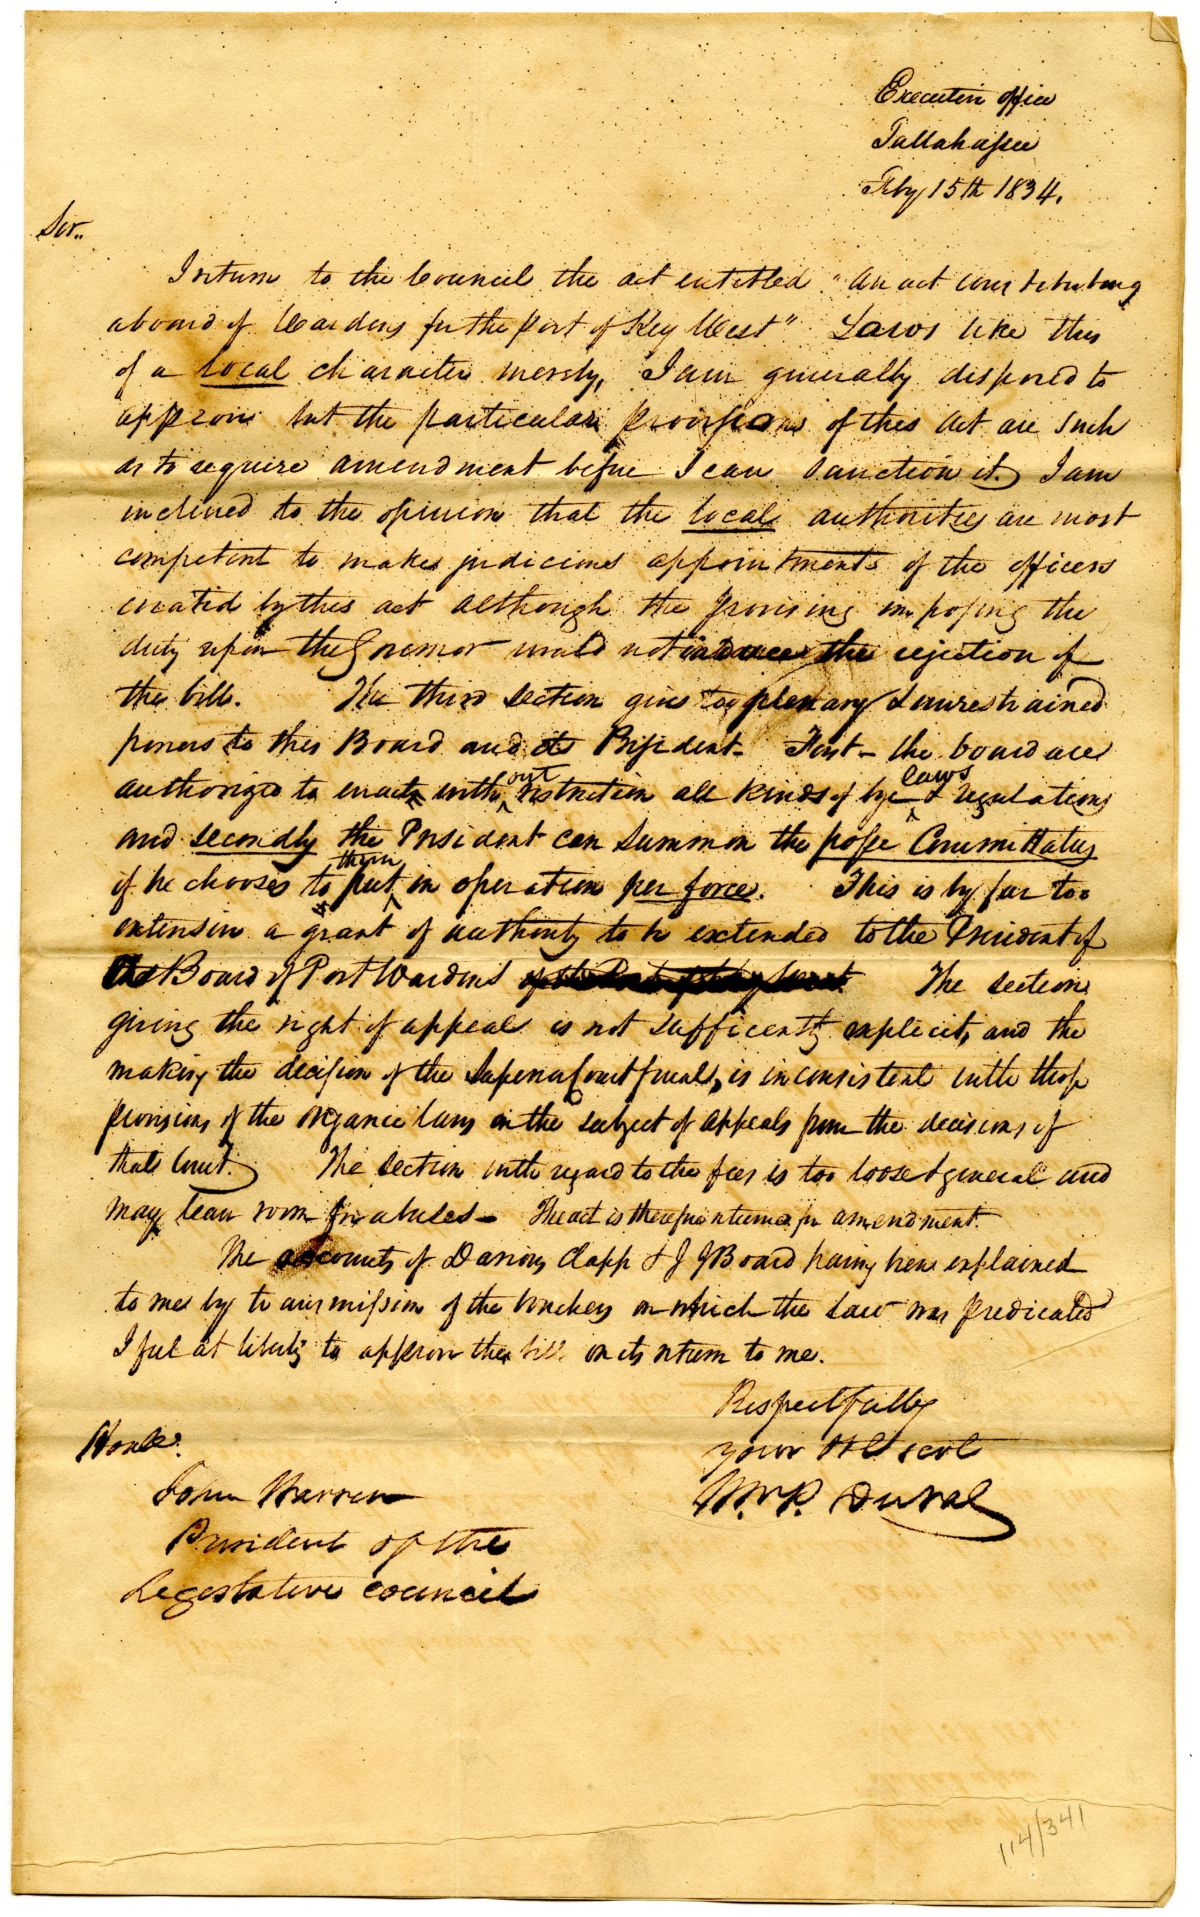 Executive office
Tallahassee
Feby 15th 1834.
Sir..
I return to the Council the act entitled "An act constituting
a board of Wardens for the Port of Key West" Laws like this
of a local character merely, I am generally disposed to
approve but the particular provisions of this Act are such
as to require amendment before I can sanction it. I am
inclined to the opinion that the local authorities are most
competent to make judicious appointments of the officers
created by this act although the provising imposing the
duty upon the Governor would not induce the rejection of
the bill. The third section gives too plenary & unrestrained
powers to this Board and its President - First - the board are
authorized to enact without restriction all kinds of bye laws & regulations
and secondly the President can summon the posse Commitatus
if he chooses to put them in operation per force. This is by far too
extensive a grant of authority to be extended to the President of
the Board of Port Wardens of the Port of Key West. The section
giving the right of appeal is not sufficently explicit, and the
making the decision of the Superior Court final, is inconsistent with those
provisions of the organic laws on the subject of appeals from the decisions of
that Court. The section with regard to the fees is too loose & general and
may leave room for abuses - The act is therefore returned for amendment.
The accounts of Darious Clapp & J J Board having been explained
to me by transmission of the vouchers on which the Law was predicated
I feel at liberty to approve the bill on its return to me.
Respectfully
your Obt servt
Wm. P. DuVal
Honble.
John Warren
President of the
Legislative Council
114/341